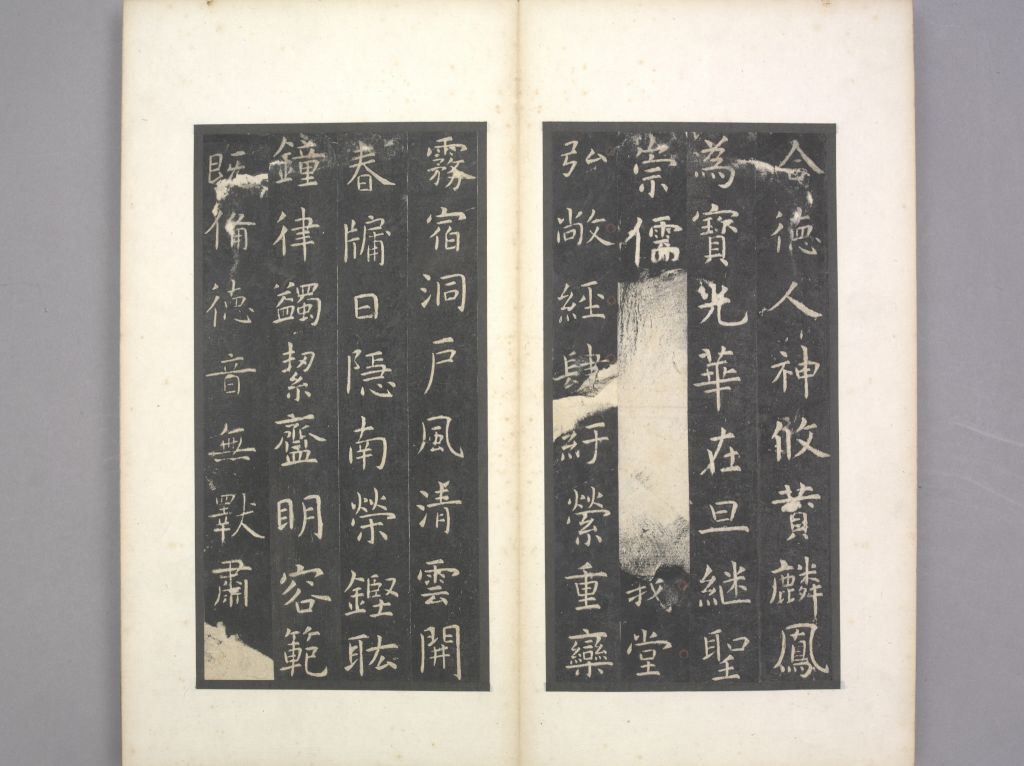 令德人神攸贊麟鳳
為寶光華在旦継聖
崇儒我堂
弘敞經肆紆縈重欒
霧宿洞戶風清雲開
春牖日隱南榮鏗耾
鐘律蠲絜齍明容範
既備德音無斁肅